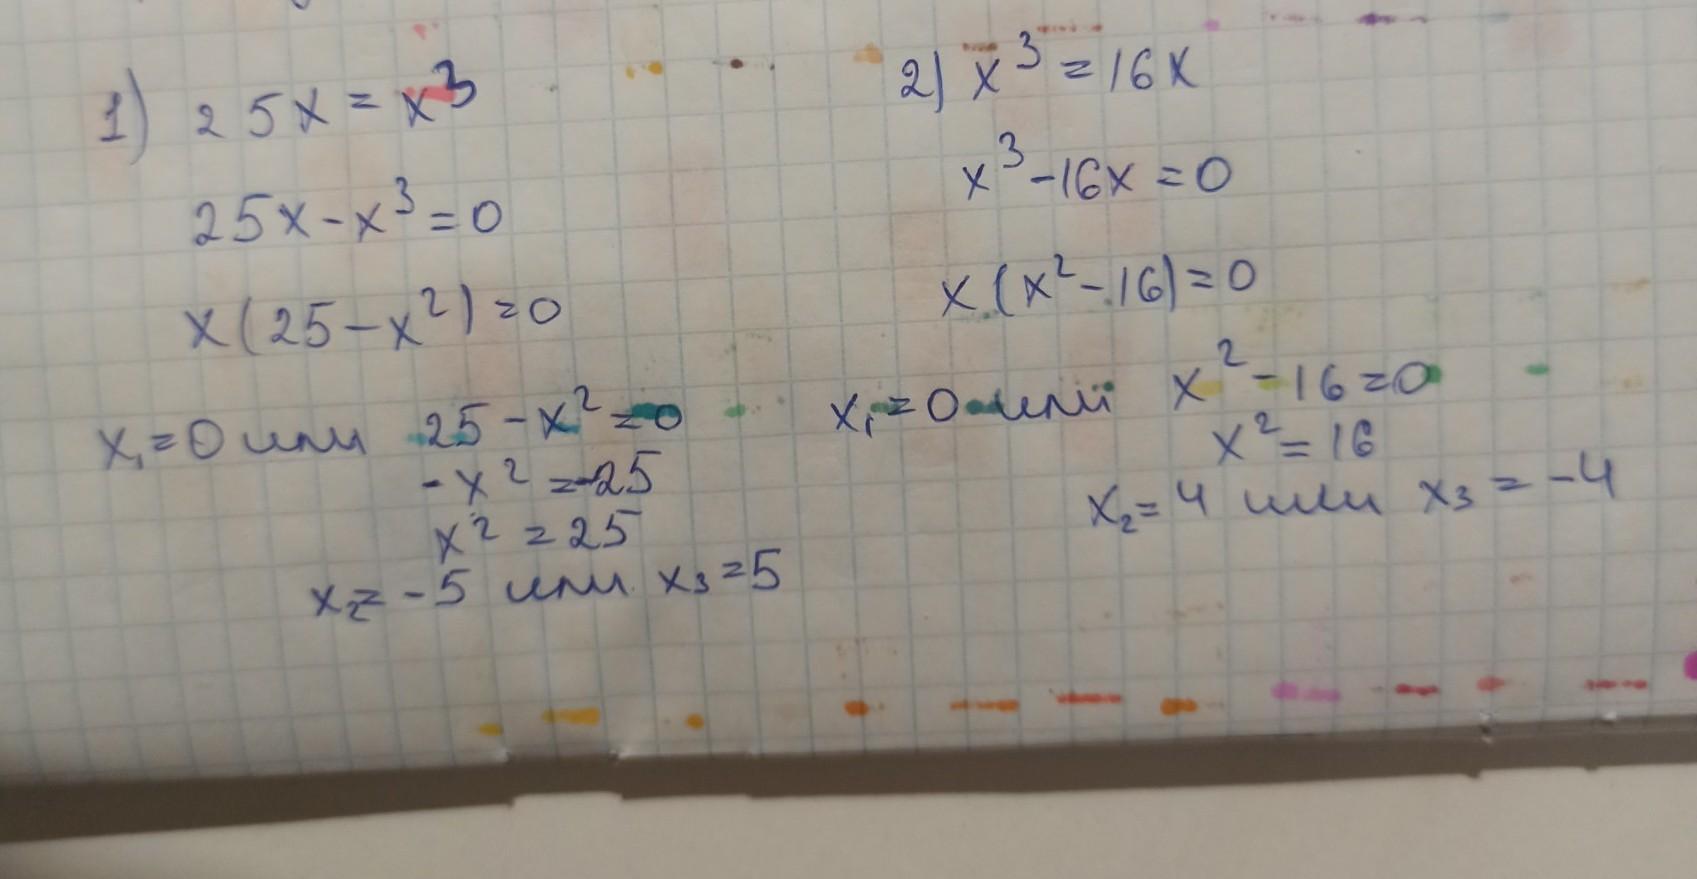 1) 25x = x³
25x - x³ = 0
x(25 - x²) = 0
x₁ = 0 или 25 - x² = 0
- x² = -25
x² = 25
x₂ = -5 или x₃ = 5
2) x³ = 16x
x³ - 16x = 0
x(x² - 16) = 0
x₁ = 0 или x² - 16 = 0
x² = 16
x₂ = 4 или x₃ = -4